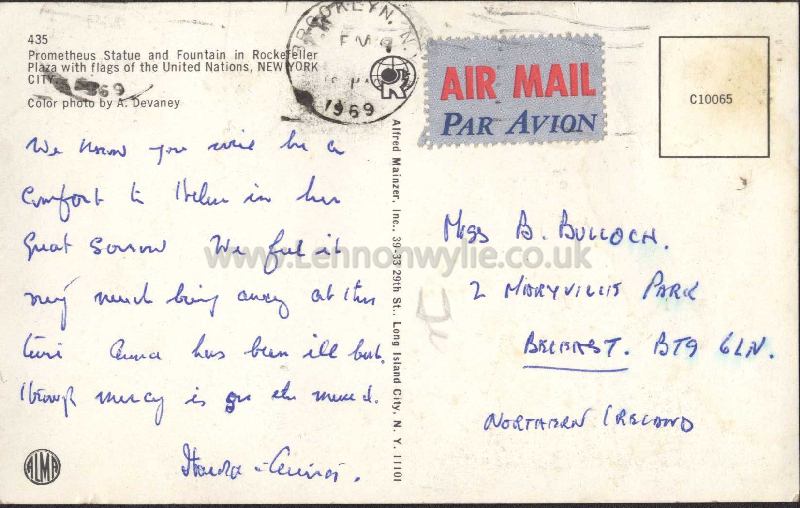 435
Prometheus Statue and Fountain in Rockefeller
Plaza with flags of the United Nations, NEW YORK
CITY.
Color photo by A. Devaney
BROOKLYN, N.Y.
PM
1969
1969
AIR MAIL
PAR AVION
C10065
We know you will be a
comfort to Helen in her
great sorrow We feel it
very much being away at this
time Anna has been ill but
through mercy is on the mend.
Alfred Mainzer, Inc., 39-33 29th St., Long Island City, N. Y. 11101
Miss B. BULLOCH.
2 MARYVILLE PARK
BELFAST. BT9 6LN.
NORTHERN IRELAND
ALMA
www.Lennonwylie.co.uk